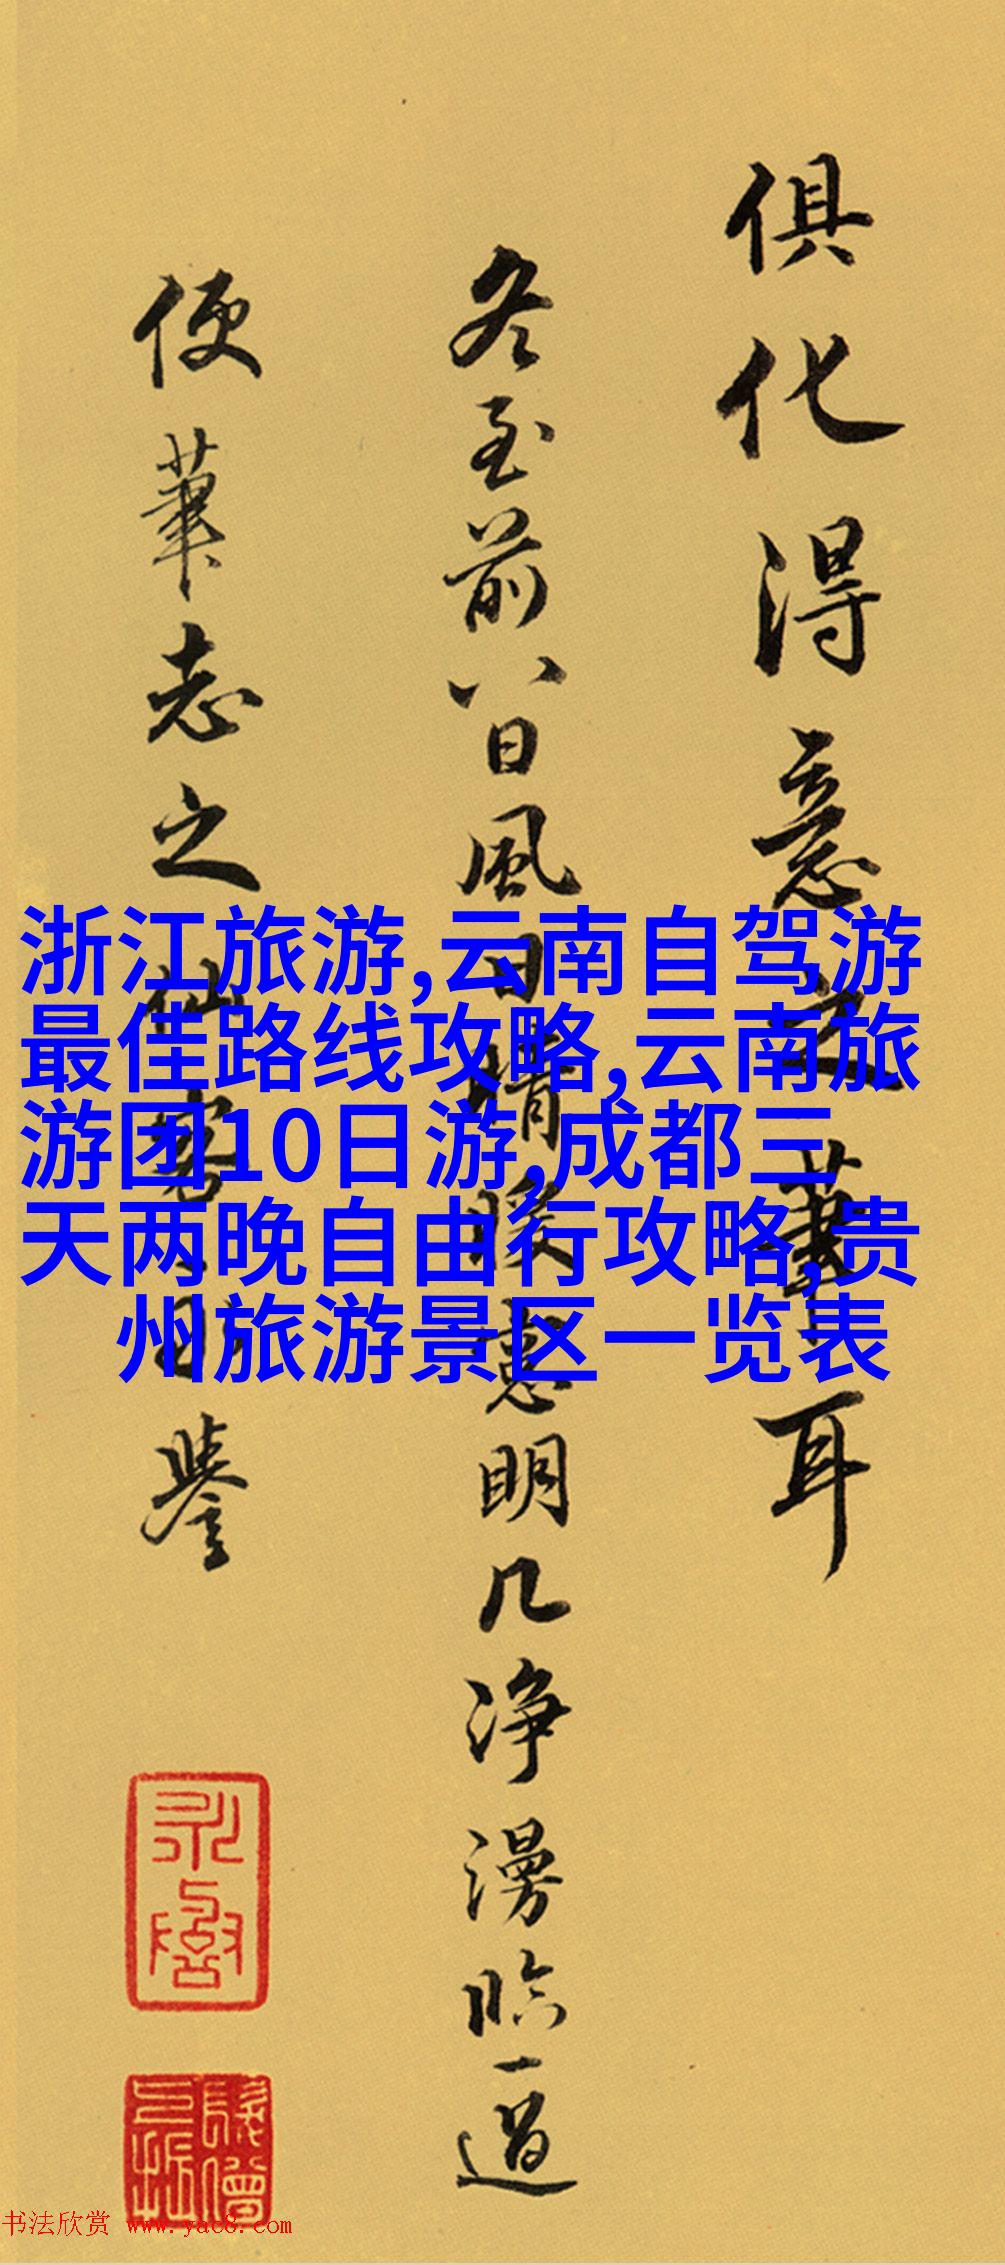 俱化得意之筆耳
冬至前八日風日晴暖窻明几淨漫臨一過
便筆志之
浙江旅游,云南自驾游
最佳路线攻略,云南旅
游团10日游,成都三
天两晚自由行攻略,贵
州旅游景区一览表
书法欣赏 www.yac8.com